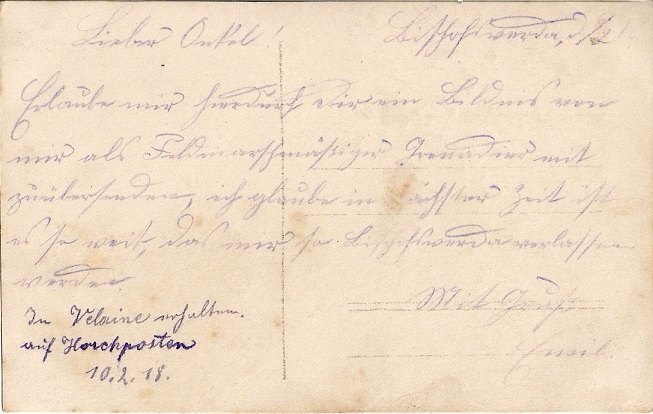 Lieber Onkel! Bischofswerda, d.
Erlaube mir hierdurch Dir ein Bildnis von
mir als Feldmarschmäßiger Grenadier mit
zuübersenden, ich glaube in nächster Zeit ist
es so weit, das wir so Bischofswerda verlassen
werden
Mit Gruß
Emil.
In Velaine erhalten.
auf Horchposten
10.2.18.